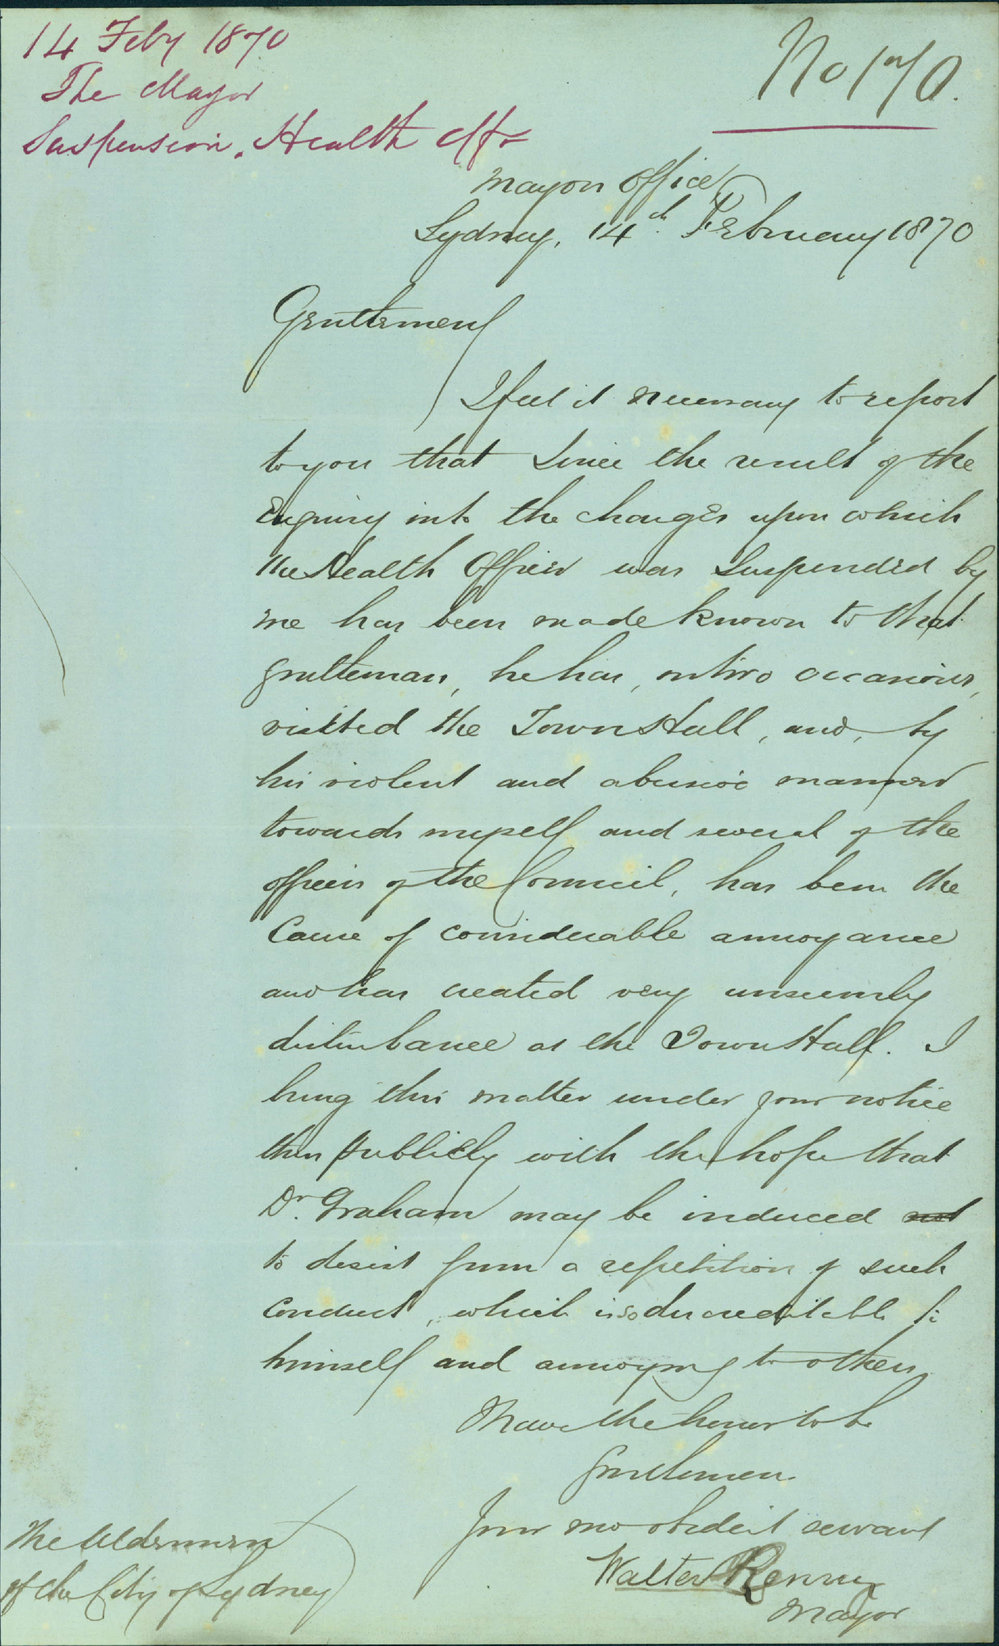 14 Feby 1870
The Mayor
Suspension. Health Offr
No 170.
Mayors Office
Sydney, 14th February 1870
Gentlemen
I feel it necessary to report
to you that since the result of the
Enquiry into the charges upon which
the Health Officer was Suspended by
me has been made known to that
gentleman, he has, on two occasions,
visited the Town Hall, and, by
his violent and abusive manner
towards myself and several of the
officers of the Council, has been the
Cause of considerable annoyance
and has created very unseemly
disturbance at the Town Hall. I
bring this matter under your notice
thus publicly with the hope that
Dr. Graham may be induced not
to desist from a repetition of such
Conduct, which is so discreditable to
himself and annoying to others.
I have the honor to be
Gentlemen
Your mo obedient servant
Walter Renny
Mayor
The Aldermen
of the City of Sydney